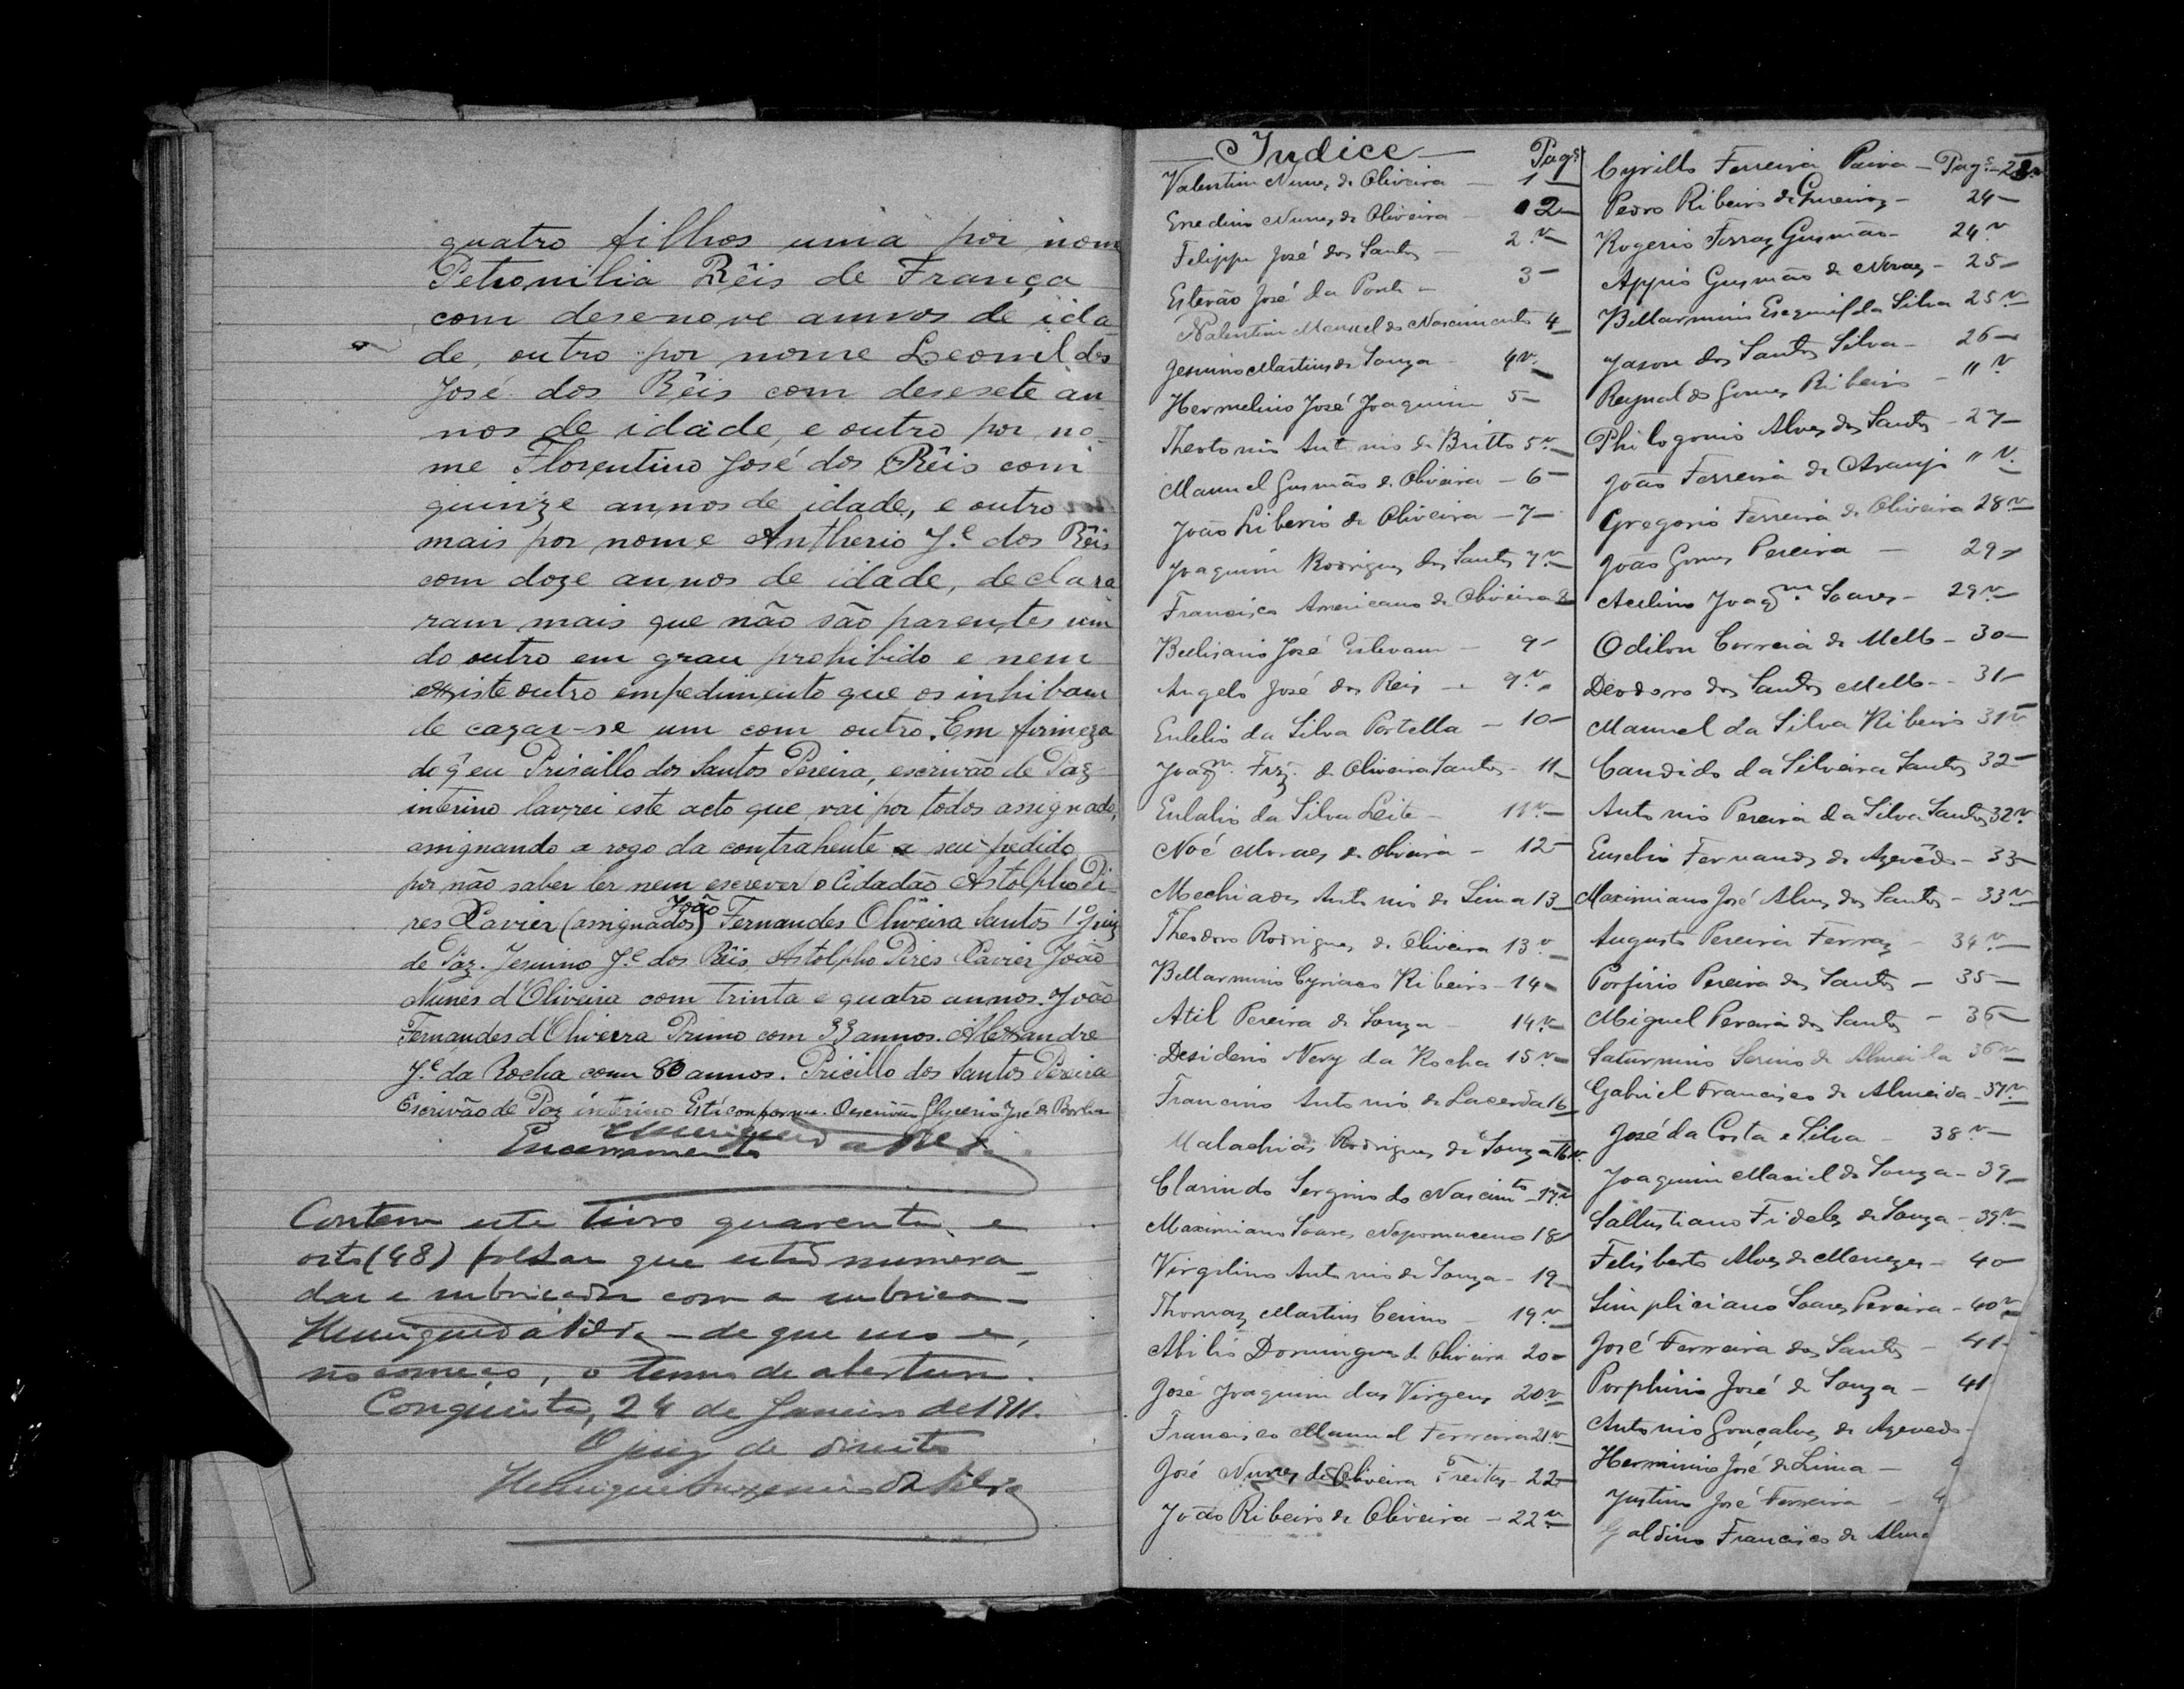 quatro filhos uma por nome
Petronilia Rêis de França
com desenove annos de ida
de, outro por nome Leonildo
José dos Rêis com desesete an
nos de idade, e outro por no
me Florentino José dos Rêis com
quinze annos de idade, e outro
mais por nome Antherio J.e dos Rêis
com doze annos de idade, declara
ram mais que não são parentes um
do outro em grau prohibido e nem
existe outro empedimento que os inhibam
de cazar-se um com outro. Em firmeza
do q̃ eu Priscillo dos Santos Pereira, escrivão de Paz
interino lavrei este acto que vai por todos assignado,
assignando a rogo da contrahente a seu pedido
por não saber ler nem escrever o Cidadão Astolpho Pi
res Xavier (assignados) João Fernandes Oliveira Santos 1º Juiz
de Paz. Jesuino J.e dos Rêis, Astolpho Pires Xavier João
Nunes d'Oliveira com trinta e quatro annos. João
Fernandes d'Oliveira Primo com 33 annos. Alexandre
J.e da Rocha com 80 annos. Pricillo dos Santos Pereira
Escrivão de Paz interino Está conforme. O escrivão Glycerio José de
Encerramento
Contem este livro quarenta e
oito (48) folhas que estão numera
das e rubricadas com a rubrica
Henique da Silva - de que uso e,
no começo, o termo de abertura.
Conquista, 24 de Janeiro de 1911.
O juiz de direito
Indice
Pags
Valentim Nunes de Oliveira - 1
Enedino Nunes de Oliveira - 2
Filippe José dos Santos - 2.v
Estevão José da Ponte - 3
Valentim Manuel do Nascimento 4
Jesuino Martins de Souza - 4v.
Hermelino José Joaquim 5
Theotonio Antonio de Britto 5.v
Manuel Gusmão de Oliveira - 6
João Liberio de Oliveira - 7
Joaquim Rodrigues dos Santos 7.v
Francisco Americano de Oliveira 8
Belisario José Estevam - 9
Angelo José dos Reis - 9.v
da Silva Portella - 10
Joaqm. Frz. de Oliveira Santos - 11
Eulalio da Silva Leite - 11.v
Noé Moraes de Oliveira - 12
Mechiades Antonio de Lima 13
Theodoro Rodrigues de Oliveira 13.v
Bellarmino Cyriaco Ribeiro - 14
Atil Pereira de Souza - 14.v
Desiderio Nery da Rocha 15.v
Francino Antonio de Lacerda 16
Malachias Rodrigues de Souza 16v.
Clarindo Sergino do Nascimto - 17.v
Maximiano Soares Nepomuceno 18
Virgilino Antonio de Souza - 19
Thomaz Martins Cerino - 19.v
Abilio Domingues de Oliveira 20
José Joaquim das Virgens 20v
Francisco Manuel Ferreira 21.v
José Nunes de Oliveira Freitas - 22
João Ribeiro de Oliveira - 22.v
Cyrillo Ferreira Paiva - Pags - 23.v
Pedro Ribeiro de Queiroz - 24
Rogerio Ferraz Gusmão - 24.v
Appio Gusmão de Novaes - 25
Bellarmino Esequiel da Silva 25.v
Jason dos Santos Silva - 26
Reynaldo Gomes Ribeiro - " v
Philogonio Alves dos Santos - 27
João Ferreira de Araujo " v.
Gregorio Ferreira de Oliveira 28.v
João Gomes Pereira - 29
Avelino Joaqm. Soares - 29.v
Odilon Correia de Mello - 30
Deodoro dos Santos Mello - 31
Manuel da Silva Ribeiro 31.v
Candido da Silveira Santos 32
Antonio Pereira da Silva Santos 32v.
Eusebio Fernandes de Azevêdo - 33
Maximiano José Alves dos Santos - 33.v
Augusto Pereira Ferraz - 34.v
Porfirio Pereira dos Santos - 35
Miguel Pereira dos Santos - 36
Saturnino Serino de Almeida 36v
Gabriel Francisco de Almeida - 37.v
José da Costa e Silva - 38.v
Joaquim Maciel de Souza - 39
Sallustiano Fideles de Souza - 39.v
Felisberto Alves de Menezes - 40
Simpliciano Soares Pereira - 40v
José Ferreira dos Santos - 41
Porphirio José de Souza - 41
Antonio Gonçalves de Azevedo -
Herminio José de Lima -
Justino José Ferreira - 4
Galdino Francisco de Alme